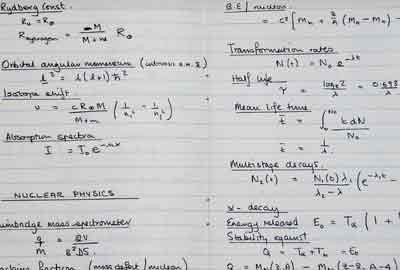 Rydberg Const.
R∞ = R∞
R hydrogen = M / M + m R∞
Orbital angular momentum
l² = l(l+1) ħ²
Isotope shift.
υ = c R∞ M / M + m ( 1/n₁² - 1/n₂² )
Absorption spectra
I = I₀ e
NUCLEAR PHYSICS
mass spectrometer
q/m = 2V / B²DS
fraction (mass defect / nucleon)
B.E / nucleon
= c² [ Mn +
Transformation rates
N(t) = N₀ e^-λt
Half life
τ = loge2 / λ = 0.693
Mean life time
t̄ = ∫ t dN / N₀
t̄ = 1/λ
Multistage decays.
N₂(t) = N₁(0) λ₁ / λ₂ - λ ( e^-λ₁t -
α - decay
Energy released E₀ = Tα ( 1 +
Stability against
Q = Tα + Th = E₀